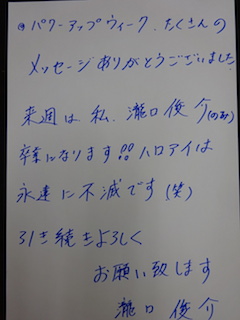 ◎パワーアップウィーク、たくさんの
メッセージありがとうございました
来週は私、瀧口俊介(のみ)
卒業になります!!ハロアイは
永遠に不滅です(笑)
引き続きよろしく
お願い致します
瀧口俊介